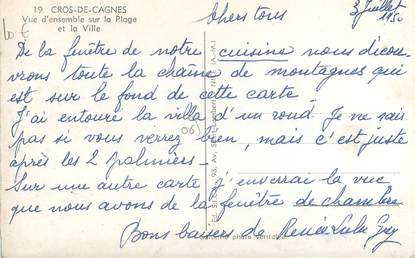 19. CROS-DE-CAGNES
Vue d'ensemble sur la Plage
et la Ville
Chers tous
3 Juillet
195
De la fenêtre de notre cuisine nous décou-
vrons toute la chaîne de montagnes qui
est sur le fond de cette carte.
J'ai entouré la villa d'un rond. Je ne sais
pas si vous verrez bien, mais c'est juste
après les 2 palmiers.
Sur une autre carte j'enverrai la vue
que nous avons de la fenêtre de chambre
Bons baisers de Renée
photo véritable
06